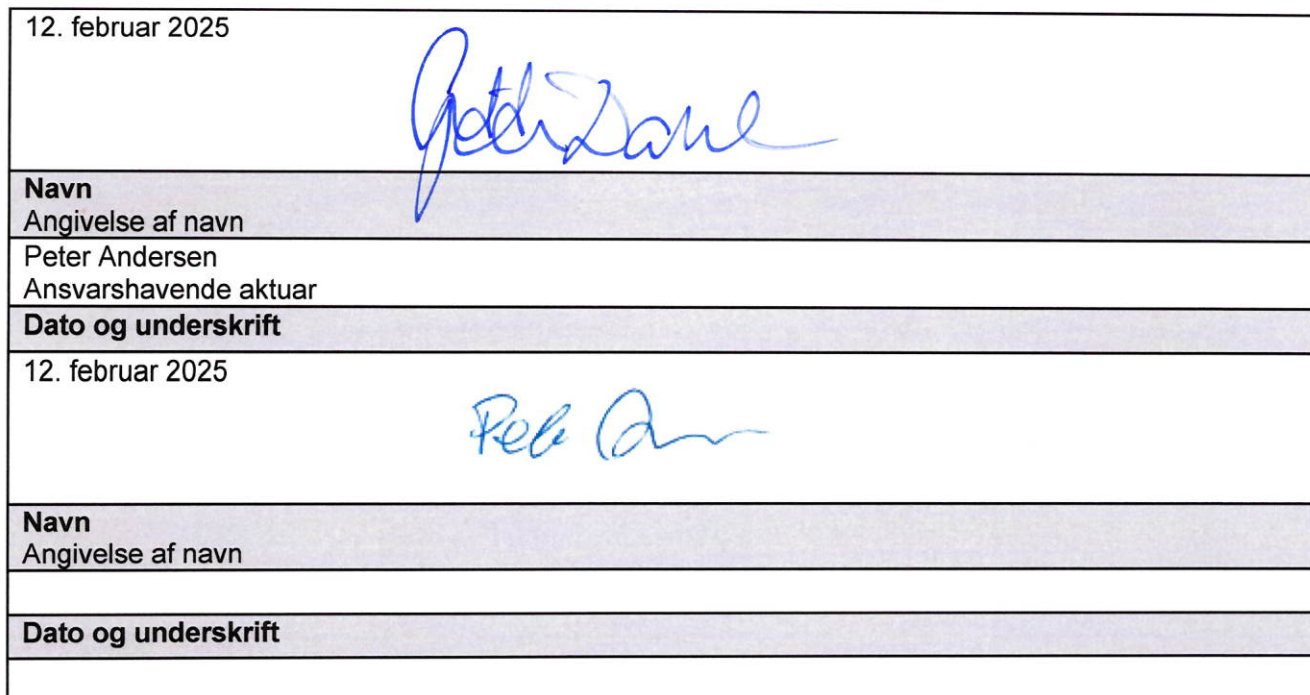 12. februar 2025
Navn
Angivelse af navn
Peter Andersen
Ansvarshavende aktuar
Dato og underskrift
12. februar 2025
Navn
Angivelse af navn
Dato og underskrift